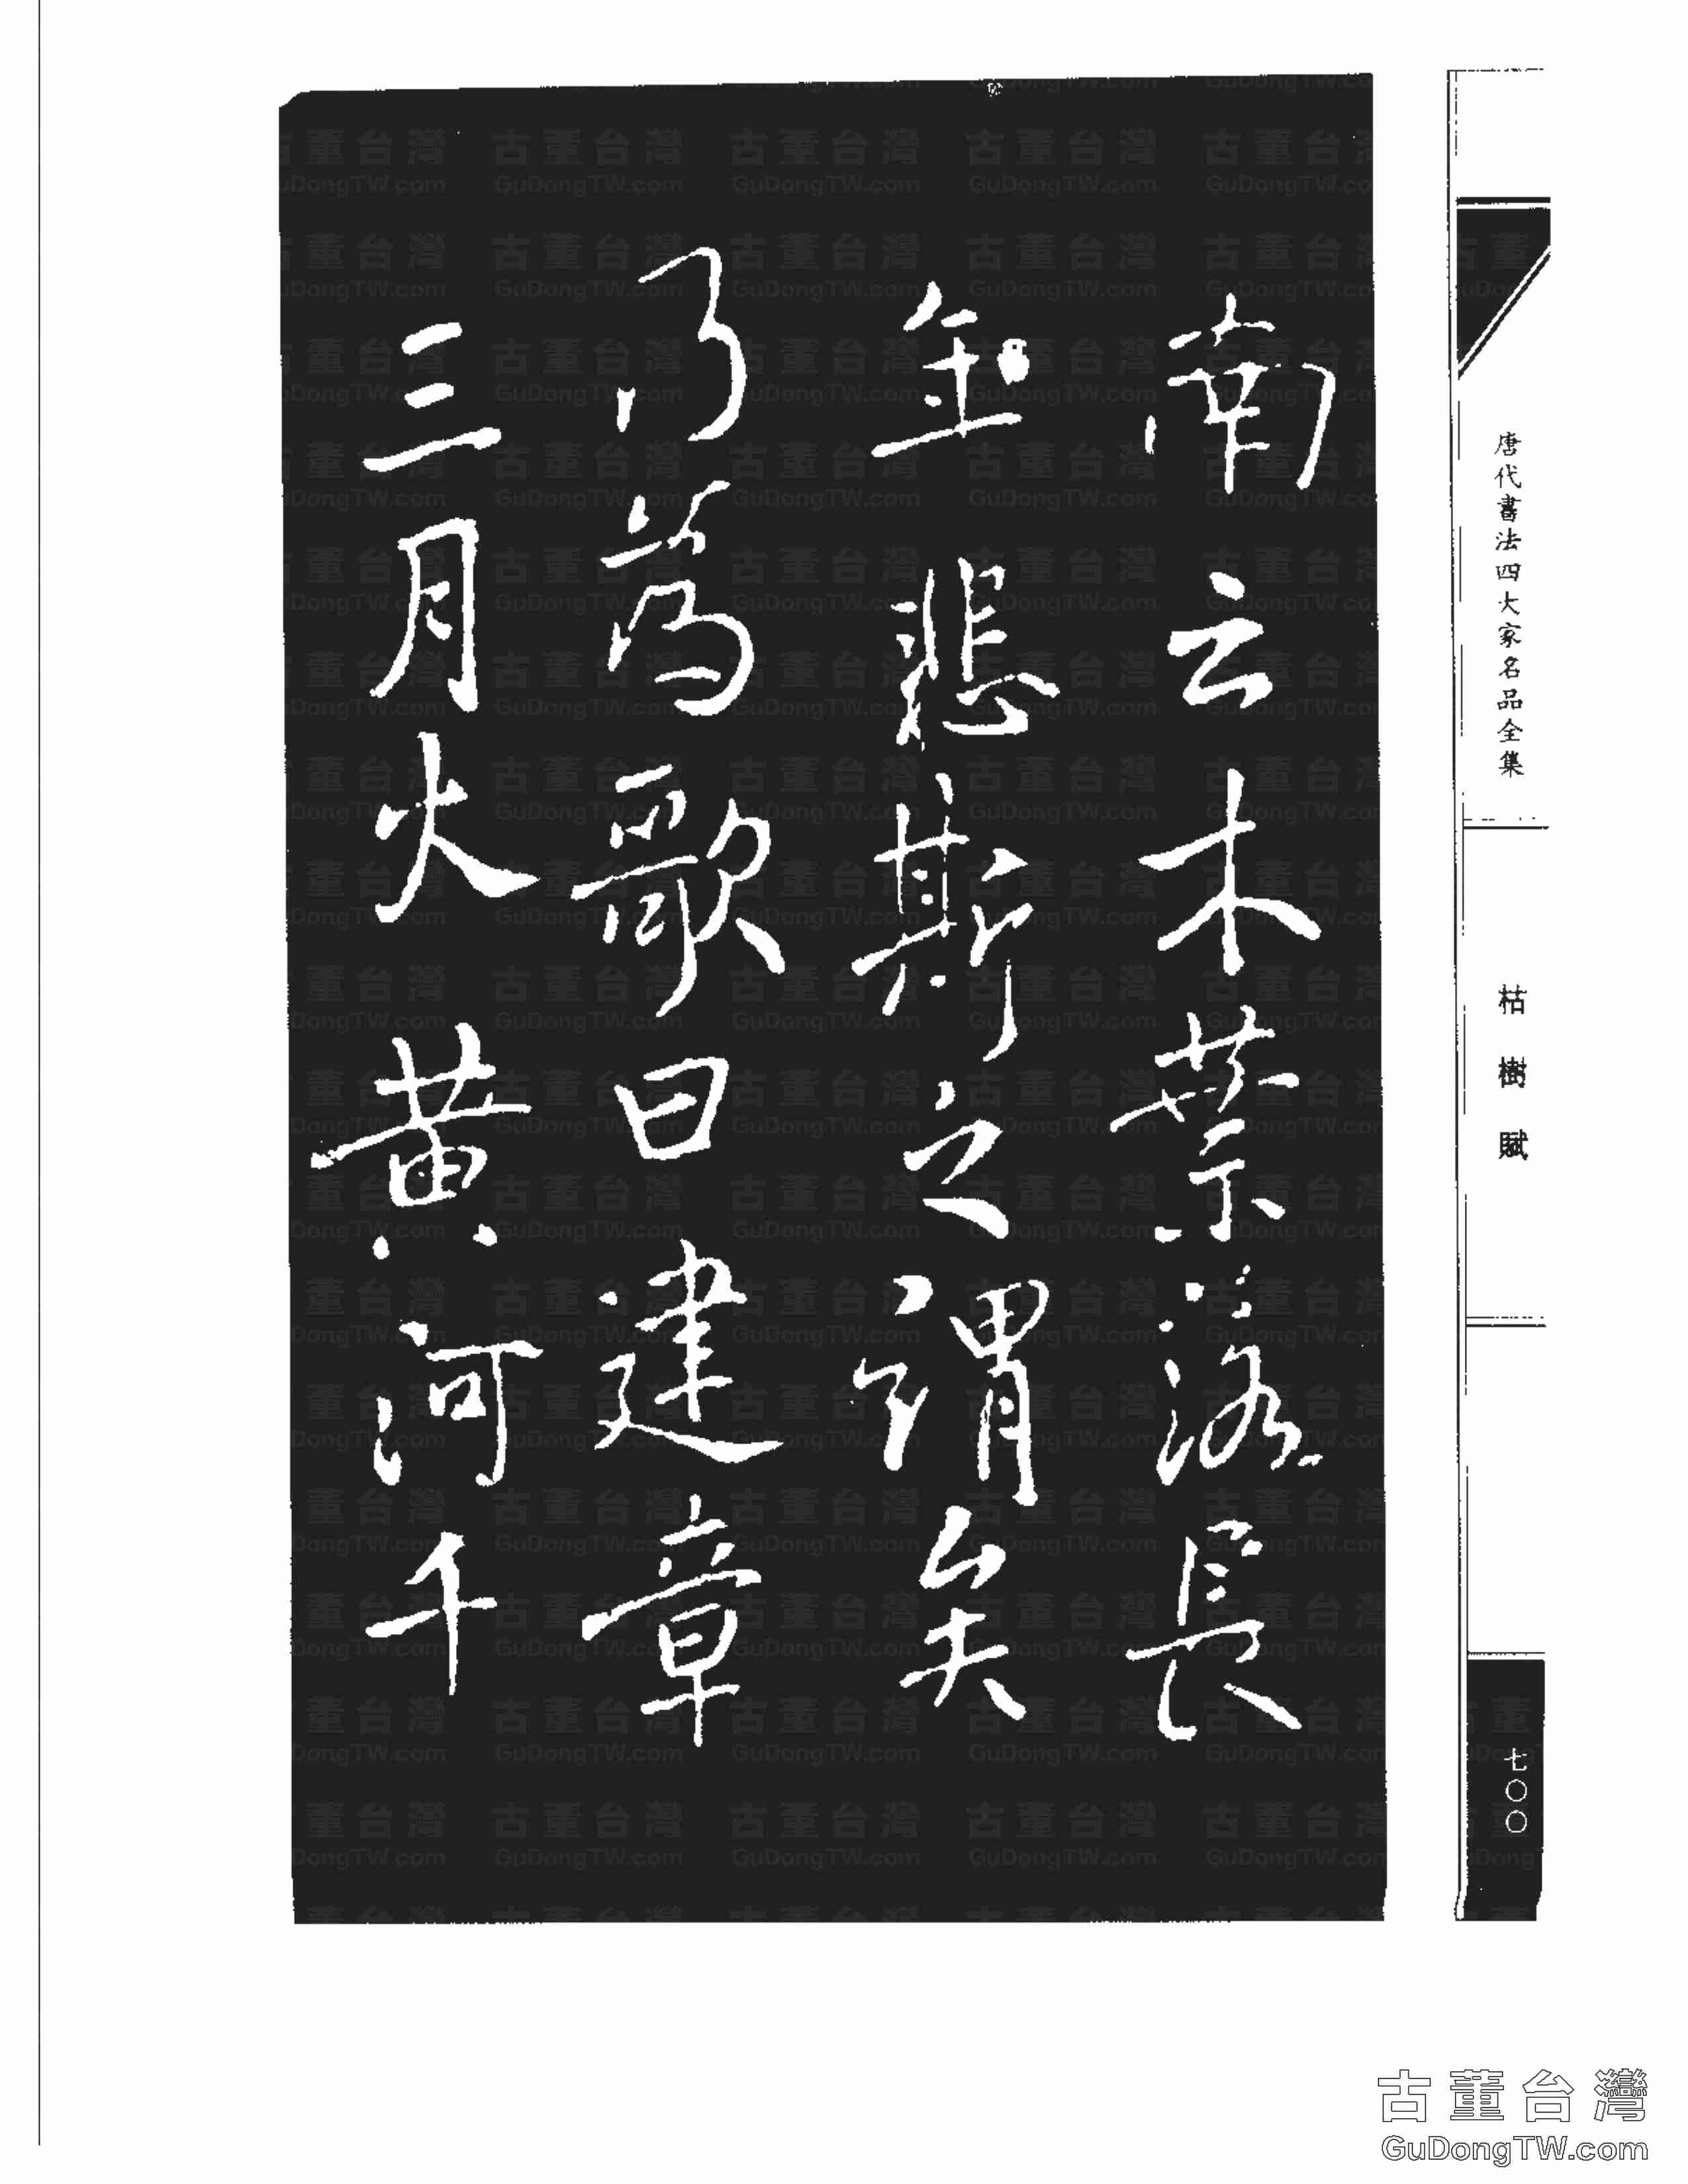 南云木葉落長
年悲斯之謂矣
乃為歌曰建章
三月火黃河千
唐代書法四大家名品全集
枯樹賦
七〇〇
古董台灣
GuDongTW.com